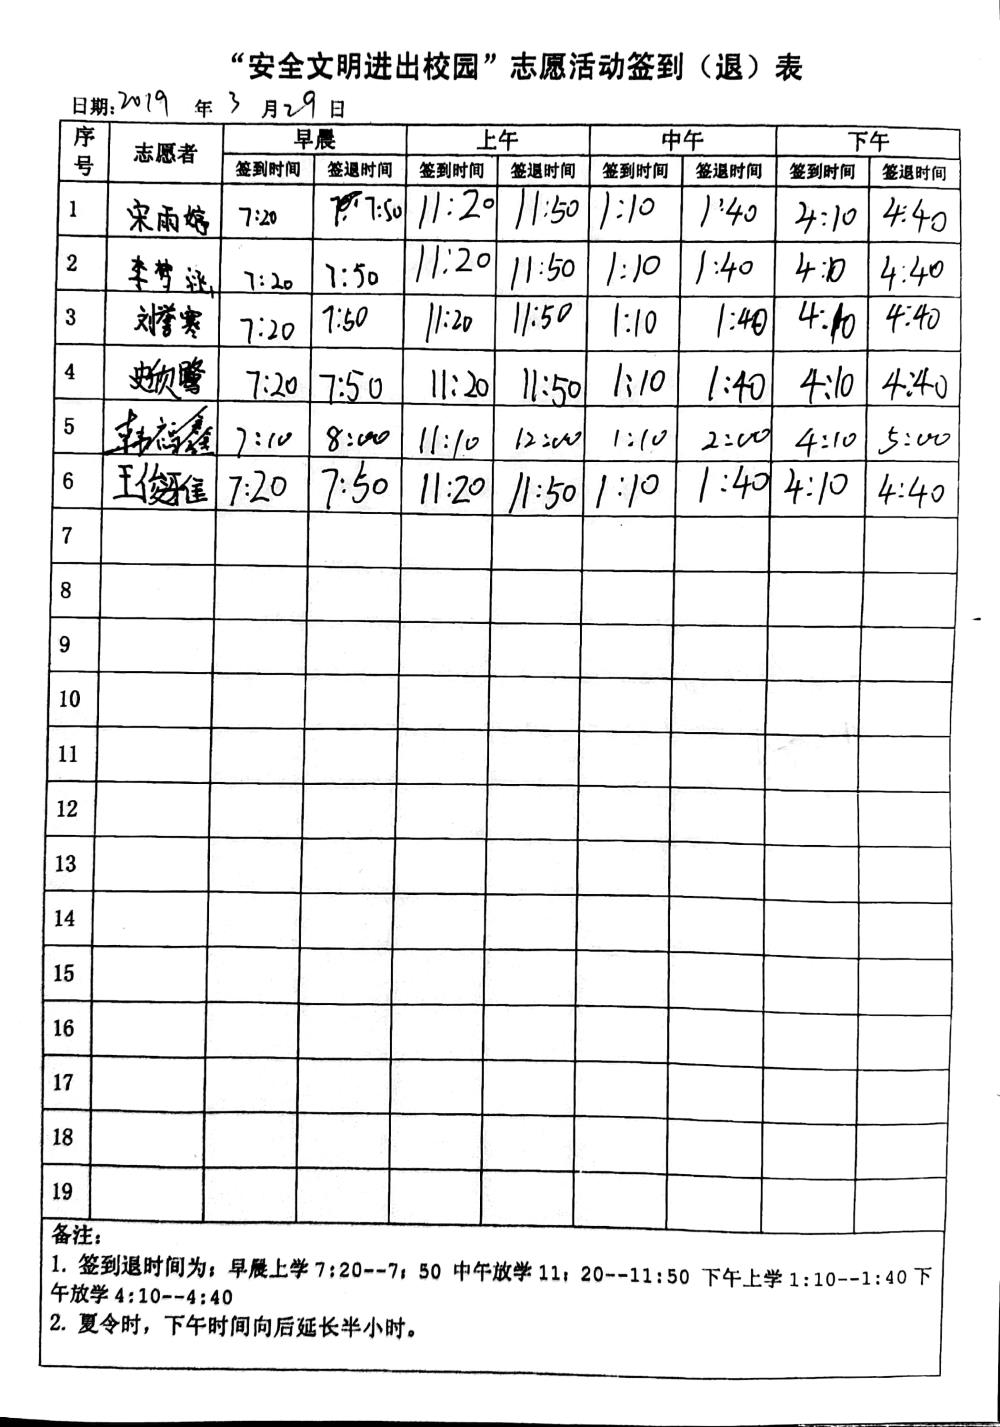 “安全文明进出校园”志愿活动签到（退）表
日期:2019 年 3 月 29 日
序号 志愿者 早晨 上午 中午 下午
签到时间 签退时间 签到时间 签退时间 签到时间 签退时间 签到时间 签退时间
1 宋雨婷 7:20 7:50 11:20 11:50 1:10 1:40 4:10 4:40
2 李梦涵 7:20 7:50 11:20 11:50 1:10 1:40 4:10 4:40
3 刘誉寒 7:20 7:50 11:20 11:50 1:10 1:40 4:10 4:40
4 史欣鹭 7:20 7:50 11:20 11:50 1:10 1:40 4:10 4:40
5 7:10 8:00 11:10 12:00 1:10 2:00 4:10 5:00
6 王俊雅 7:20 7:50 11:20 11:50 1:10 1:40 4:10 4:40
7
8
9
10
11
12
13
14
15
16
17
18
19
备注：
1. 签到退时间为；早晨上学 7:20--7；50 中午放学 11；20--11:50 下午上学 1:10--1:40 下
午放学 4:10--4:40
2. 夏令时，下午时间向后延长半小时。